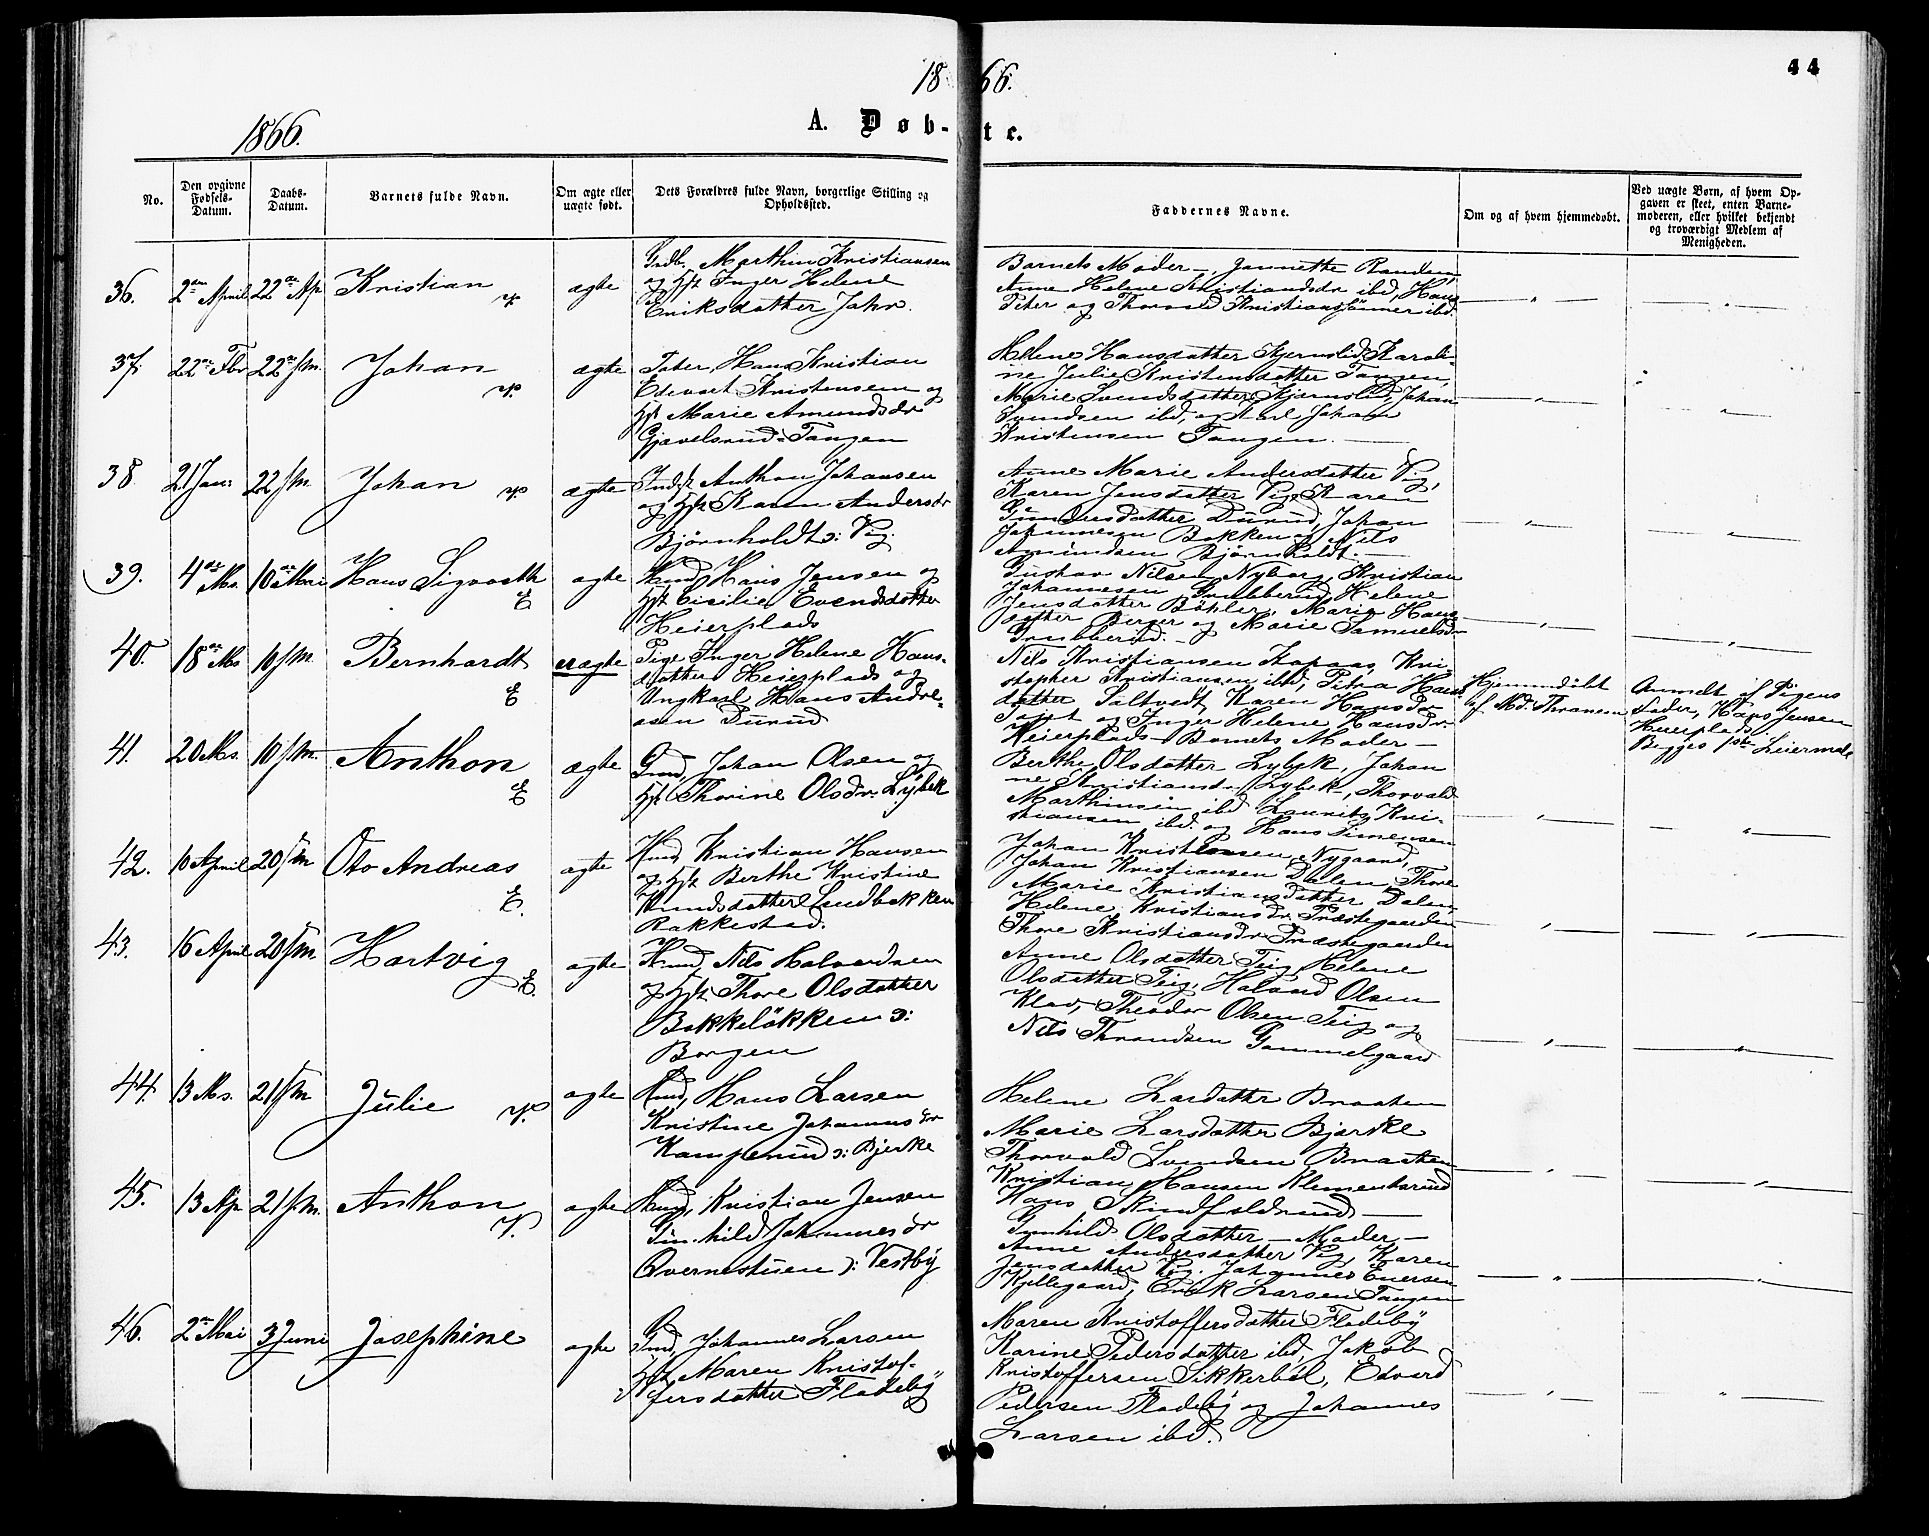 1866.
44
1866.
A. Døbte.
No.
Den opgivne Fødsels-Datum.
Daabs-Datum.
Barnets fulde Navn.
Om ægte eller uægte født.
Dets Forældres fulde Navn, borgerlige Stilling og Opholdssted.
Faddernes Navne.
Om og af hvem hjemmedøbt.
Ved uægte Børn, af hvem Opgaven er skeet, enten Barnemoderen, eller hvilket bekjendt og troværdigt Medlem af Menigheden.
36. 2den April 22de Ap Kristian V. ægte
Grdb. Marthin Kristiansen
og Hst Inger Helene
Eriksdatter Jahr.
Barnets Moder -, Jannette Randem,
Anne Helene Kristiansdr ibd, Hans
Peter og Thorvald Kristianssönner ibd.
37. 22de Fbr 22de s.m. Johan V. ægte
Tater, Hans Kristian
Edevart Kristensen og
Hst Marie Amundsdr
Gjævelsrud - Tangen
Helene Hansdatter Kjernslid, Karoli-
ne Julie Kristensdatter Tangen,
Marie Svendsdatter Kjernslid, Johan
Svendsen ibd, og Karl Johan
Kristensen Tangen.
38 21 Jan: 22 s.m. Johan V. ægte
Inds. Anthon Johansen
og Hst Karen Andersdr
Bjørnholdt o: Vig.
Anne Marie Andersdatter Vig,
Karen Jensdatter Vig, Karen
Gundersdatter Durud, Johan
Johannesen Bakken og Nils
Amundsen Bjørnholdt.
39. 4de Ms. 10de Mai Hans Sigvardth E ægte
Hmd Hans Jensen og
Hst Cicilie Evendsdatter
Heierplads
Gustav Nilsen Nyborg, Kristian
Johannesen Grubberud, Helene
Jensdatter Böhler, Marie Hans-
datter Berger og Marie Samuelsdr
Grubberud.
40. 18de Ms 10 s.m. Bernhardt E uægte
Pige Inger Helene Hans-
datter Heierplads og
Ungkarl Hans Andre-
asen Durud
Nils Kristiansen Kapaas, Kri-
stopher Kristiansen ibd, Petra Hans-
datter Saltvedt, Karen Hansdr
og Inger Helene Hansdr
Heierplads - Barnets Moder -
Hjemmedöbt
af Md. Thranem
Anmeldt af Pigens
Fader, Hans Jensen
Heierplads.
Begges 1ste Leiermaal
41. 20 Ms. 10 s.m. Anthon E ægte
Grmd Johan Olsen og
Hst Thorine Olsdr. Lÿbek
Berthe Olsdatter Lybek, Johan
ne Kristiansdr Lybek, Thorvald
Marthinsen ibd Lauritz Kri-
stiansen ibd. og Hans Simensen
42. 10 April 20 s.m. Oto Andreas E. ægte
Hmd Kristian Hansen
og Hst Berthe Kristine
Knudsdatter Lundbakken
Rakkestad.
Johan Kristensen Nygaard,
Johan Kristiansen Dalen, Thore
Marie Kristiansdatter Dalen,
Helene Kristiansdr Præstegaarden
Thore Kristiansdr Præstegaarden
43. 16 April 20 s.m. Hartvig E. ægte
Hmd Nils Halvordsen
og Hst Thore Olsdatter
Bakkelökken o:
Borgen
Anne Olsdatter Teig, Helene
Olsdatter Teig, Halvard Olsen
Klav, Theodor Olsen Teig og
Nils Throndsen Gammelgaard
44. 13 Ms. 21 s.m. Julie V. ægte
Hmd, Hans Larsen
Kristine Johannesdr
Kamperud o: Bjerke
Helene Larsdatter Braaten
Marie Larsdatter Bjerke
Thorvald Svendsen Braaten
Kristian Hansen Klementsrud
Hans Skindfaldrud
45. 13 Ap 21 s.m. Anthon V. ægte
Hmd, Kristian Jensen
Gunhild Johannesdr
Övernestuen o: Vestbÿ
Gunhild Olsdatter - Moder -
Anne Andersdatter Vig, Karen
Jensdatter Vig. Johannes Enersen
Kjellegaard, Erik Larsen Tangen
46. 2den Mai 3 Juni Josephine ægte
Grmd, Johannes Larsen
Hst Maren Kristof-
fersdatter Fladebÿ
Maren Kristoffersdatter Fladebÿ
Karine Pedersdatter ibd, Jakob
Kristoffersen Sikkerböl, Edvard
Pedersen Fladeby og Johannes
Larsen ibd.